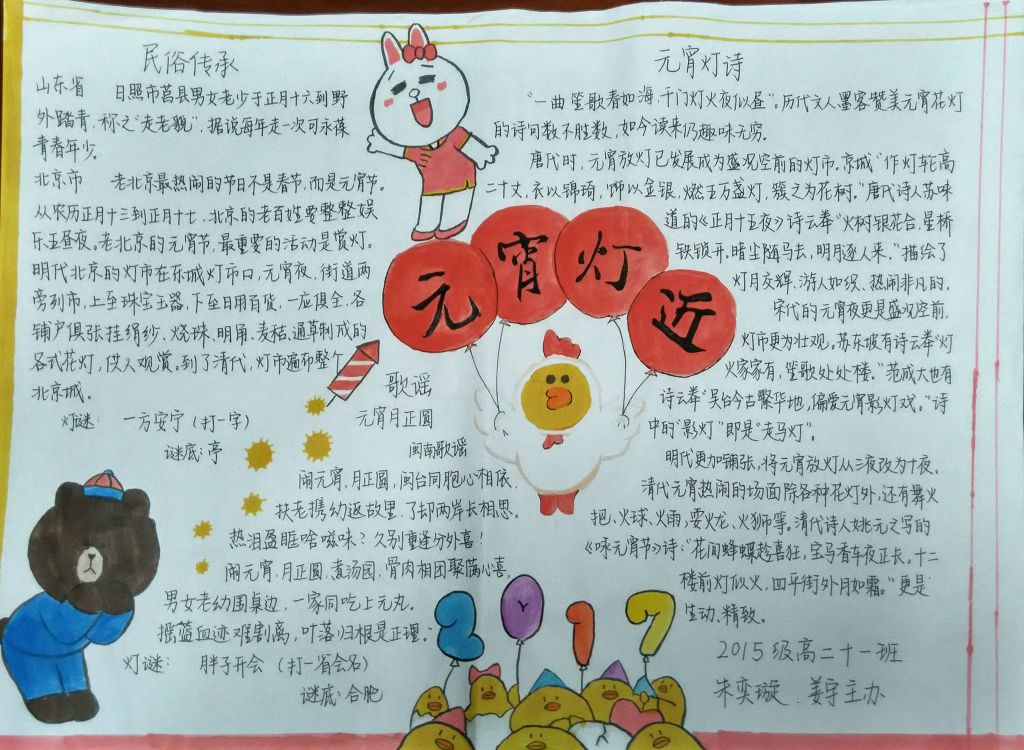 民俗传承
山东省 日照市莒县男女老少于正月十六到野
外踏青,称之"走老貌",据说每年走一次可永葆
青春年少。
北京市 老北京最热闹的节日不是春节,而是元宵节。
从农历正月十三到正月十七,北京的老百姓要整整娱
乐五昼夜。老北京的元宵节,最重要的活动是赏灯。
明代北京的灯市在东城灯市口,元宵夜、街道两
旁列市,上至珠宝玉器,下至日用百货,一应俱全,各
铺户俱张挂绢纱、烧珠、明角、麦秸、通草制成的
各式花灯,供人观赏。到了清代,灯市遍布整个
北京城。
灯谜: 一方安宁(打一字)
谜底:亭
元宵灯近
歌谣
元宵月正圆
闽南歌谣
闹元宵,月正圆,闽台同胞心相依,
扶老携幼返故里,了却两岸长相思。
热泪盈眶啥滋味?久别重逢分外喜!
闹元宵,月正圆,煮汤圆,骨肉相团聚满心喜,
男女老幼围桌边,一家同吃上元丸.
摇篮血迹难割离,叶落归根是正理。"
灯谜: 胖子开会(打一省会名)
谜底:合肥
元宵灯诗
"一曲笙歌春如海,千门灯火夜似昼"。历代文人墨客赞美元宵花灯
的诗句数不胜数,如今读来仍趣味无穷。
唐代时,元宵放灯已发展成为盛况空前的灯市.京城"作灯轮高
二十丈,衣以锦琦,饰以金银,燃五万盏灯,簇之为花树。"唐代诗人苏味
道的《正月十五夜》诗云拳"火树银花合,星桥
铁锁开,暗尘随马去,明月逐人来。"描绘了
灯月交辉,游人如织、热闹非凡的.
宋代的元宵夜更是盛况空前,
灯市更为壮观。苏东坡有诗云拳"灯
火家家有,笙歌处处楼。"范成大也有
诗云拳"吴台今古繁华地,偏爱元宵影灯戏。"诗
中的"影灯"即是"走马灯"。
明代更加铺张,将元宵放灯从三夜改为十夜。
清代元宵热闹的场面除各种花灯外,还有舞火
把、火球、火雨,耍火龙、火狮等。清代诗人姚元之写的
《咏元宵节》诗:"花间蜂蝶趁喜狂,宝马香车夜正长。十二
楼前灯似火,四平街外月如霜。"更是
生动、精致。
2 Y 1 7
2015级高二十一班
朱奕璇.姜宇主办